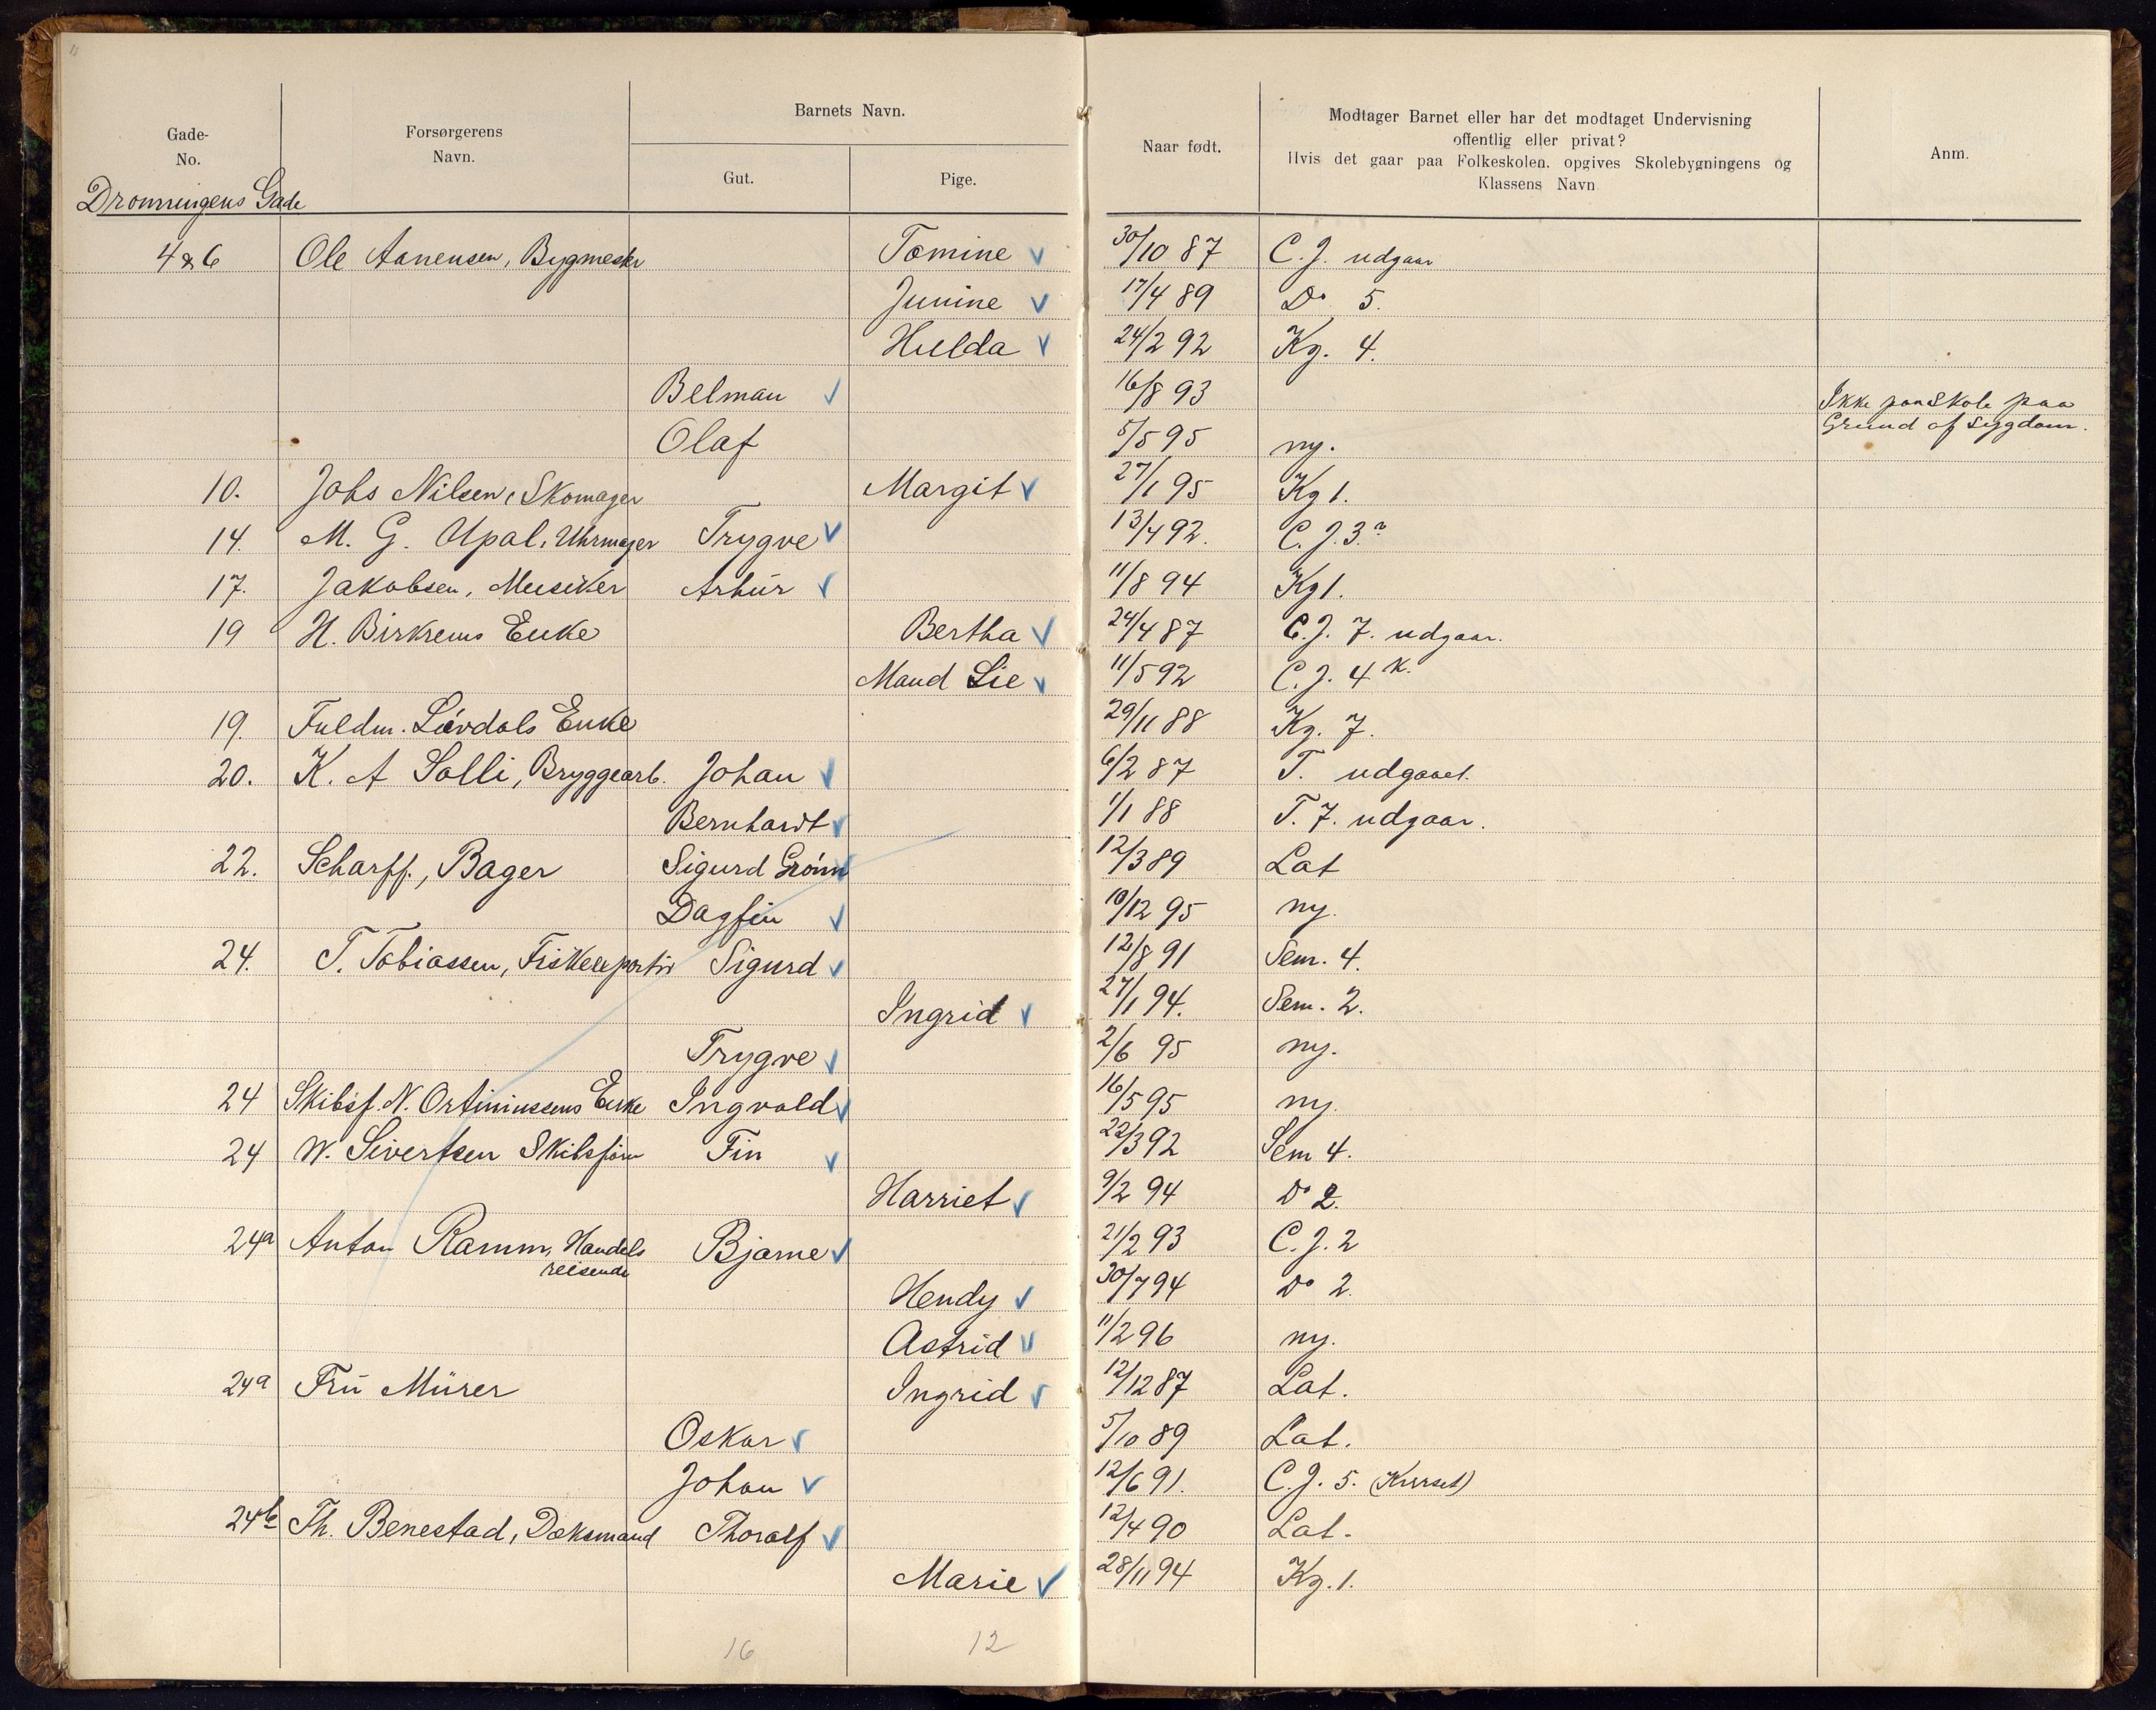 Gade-No.
Forsørgerens Navn.
Barnets Navn.
Gut.
Pige.
Naar født.
Modtager Barnet eller har det modtaget Undervisning
offentlig eller privat?
Hvis det gaar paa Folkeskolen. opgives Skolebygningens og
Klassens Navn
Anm.
Dronningens Gade
4 & 6 Ole Aanensen, Bygmester Tomine 30/10 87 C. J. udgaar
Junine 17/4 89 Do 5.
Hulda 24/2 92 Kg. 4.
Belman 16/8 93 Ikke paa Skole paa
Grund af Sygdom.
Olaf 5/5 95 ny.
10. Johs Nilsen, Skomager Margit 27/1 95 Kg 1.
14. M. G. Upal, Uhrmager Trygve 13/4 92. C. J. 3.
17. Jakobsen, Musiker Arhur 11/8 94 Kg 1.
19 H. Birkrems Enke Bertha 24/4 87 C. J. 7. udgaar.
Maud Lie 11/5 92 C. J. 4 K.
19. Fuldm. Lövdals Enke 29/11 88 Kg. 7.
20. K. A Solli, Bryggearb. Johan 6/2 87 T. udgaaet.
Bernhardt 1/1 88 T. 7. udgaar.
22. Scharff., Bager Sigurd Grönn 12/3 89 Lat
Dagfin 10/12 95 ny.
24. T. Tobiassen, Fiskeexportör Sigurd 12/8 91 Sem. 4.
Ingrid 27/1 94. Sem. 2.
Trygve 2/6 95 ny.
24 Skibsf. N. Ortiniussens Enke Ingvald 16/5 95 ny.
24 W. Sivertsen Skibsförer Fin 22/3 92 Sem 4.
Harriet 9/2 94 Do 2.
24a Anton Ramm, Handels 
reisende Bjarne 21/2 93 C. J. 2
Hendy 30/7 94 Do 2.
Astrid 11/2 96 ny.
24a Fru Mürer Ingrid 12/12 87 Lat.
Oskar 5/10 89 Lat.
Johan 12/6 91. C. J. 5. (Kurset)
24b Th. Benestad, Dæksmand Thoralf 12/4 90 Lat.
Marie 28/11 94 Kg. 1.
16 12